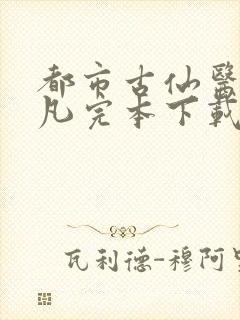 都市古仙醫
凡完本下載
瓦利德-穆阿